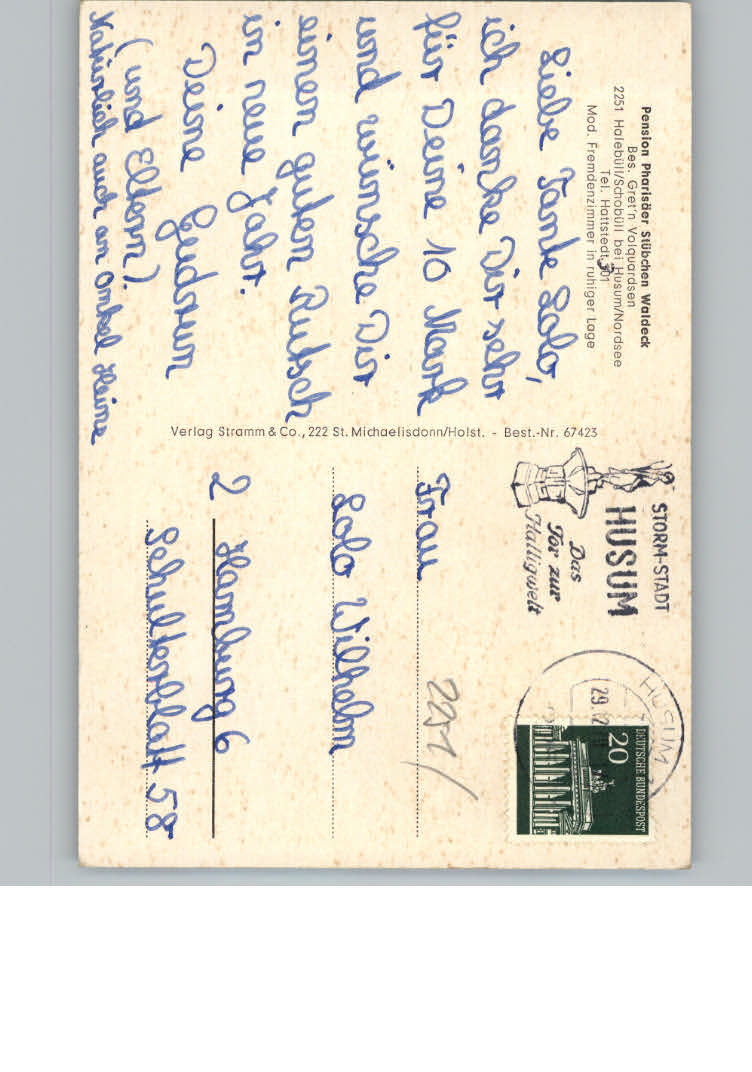 Pension Pharisäer Stübchen Waldeck
Bes. Gret'n Volquardsen
2251 Halebüll/Schobüll bei Husum/Nordsee
Tel. Hattstedt 301
Mod. Fremdenzimmer in ruhiger Lage
Liebe Tante Lolo,
ich danke Dir sehr
für Deine 10 Mark
und wünsche Dir
einen guten Rutsch
in neue Jahr.
Deine Gudrun
(und Eltern).
Natürlich auch an Onkel Heine
Verlag Stramm & Co., 222 St. Michaelisdonn/Holst. - Best.-Nr. 67423
STORM-STADT
HUSUM
Das
Tor zur
Halligwelt
HUSUM
29.12
DEUTSCHE BUNDESPOST
20
2251/
Frau
Lolo Wilhelm
2 Hamburg 6
Schulterblatt 58